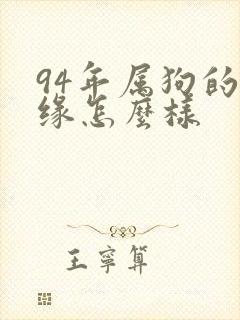 94年属狗的
缘怎麽样
王寧算